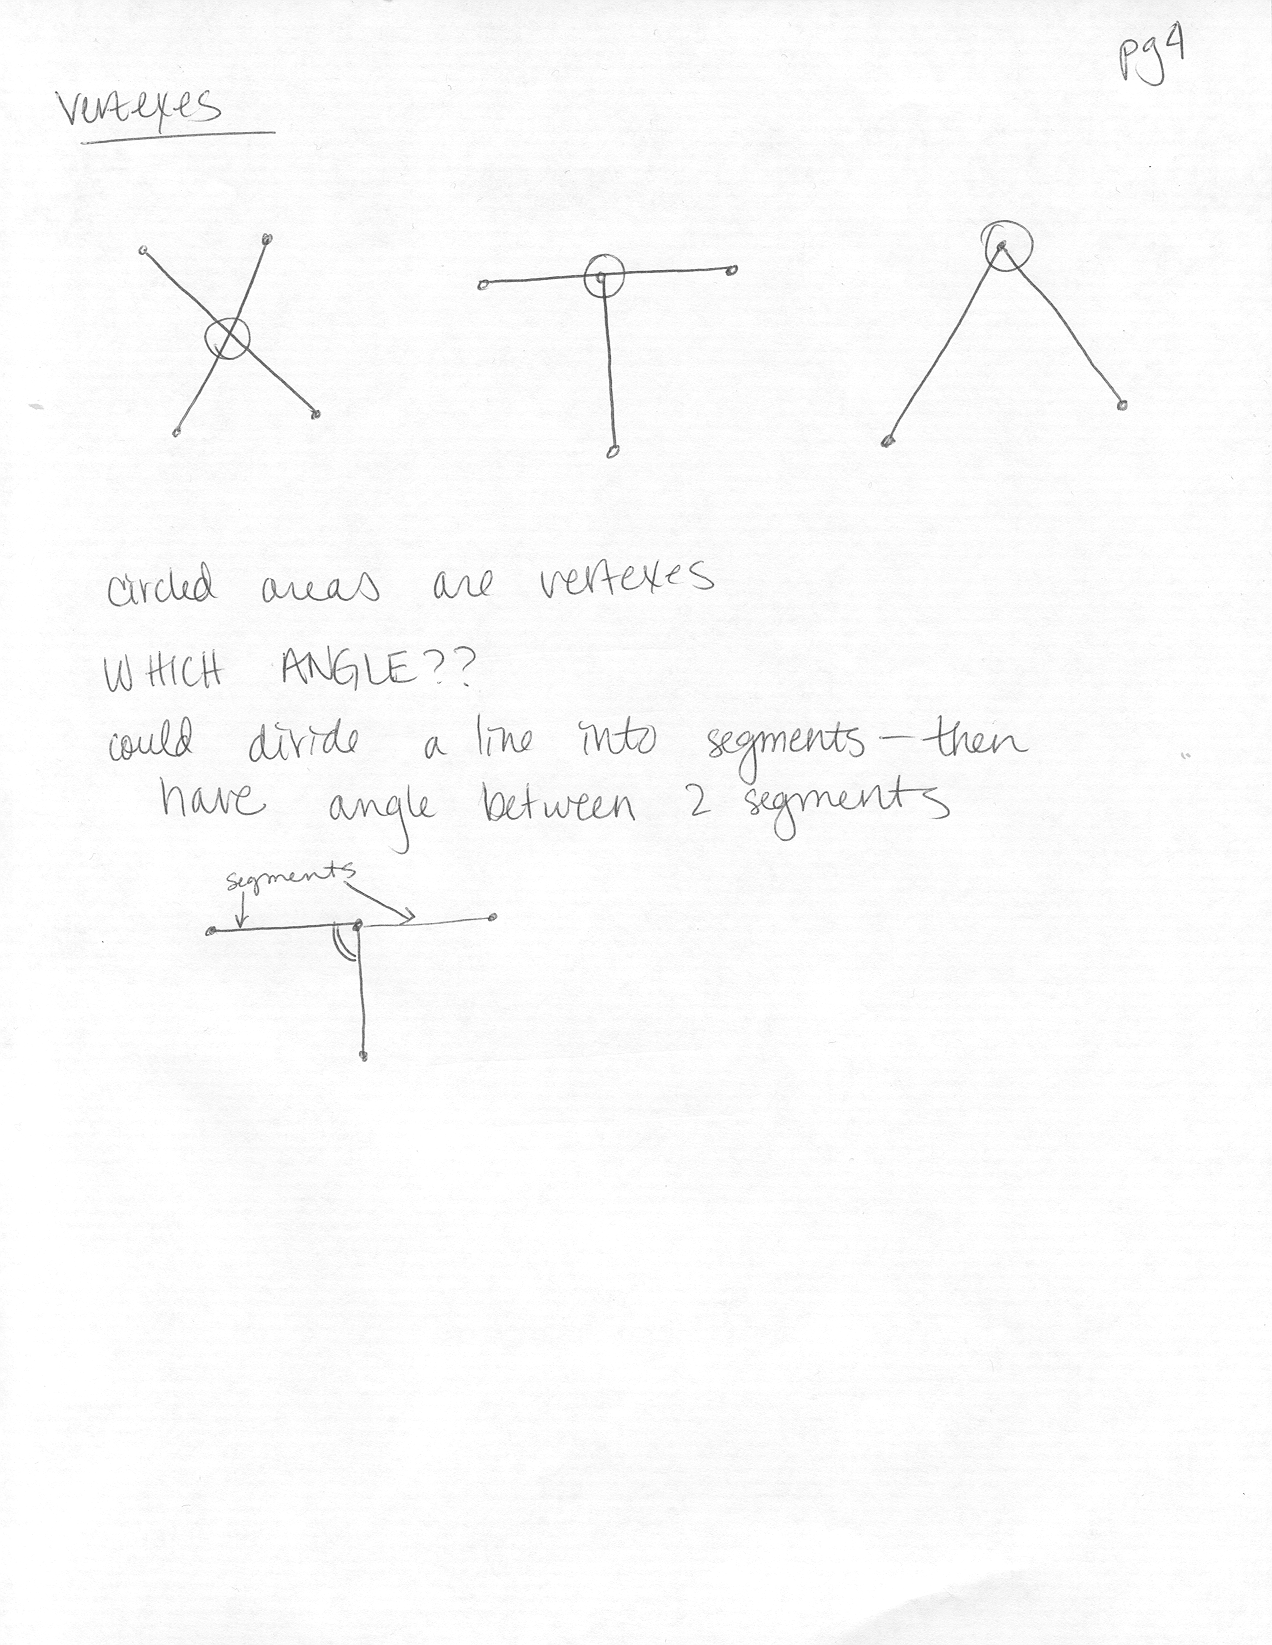 pg 4
vertexes
circled areas are vertexes
WHICH ANGLE??
could divide a line into segments — then
have angle between 2 segments
segments